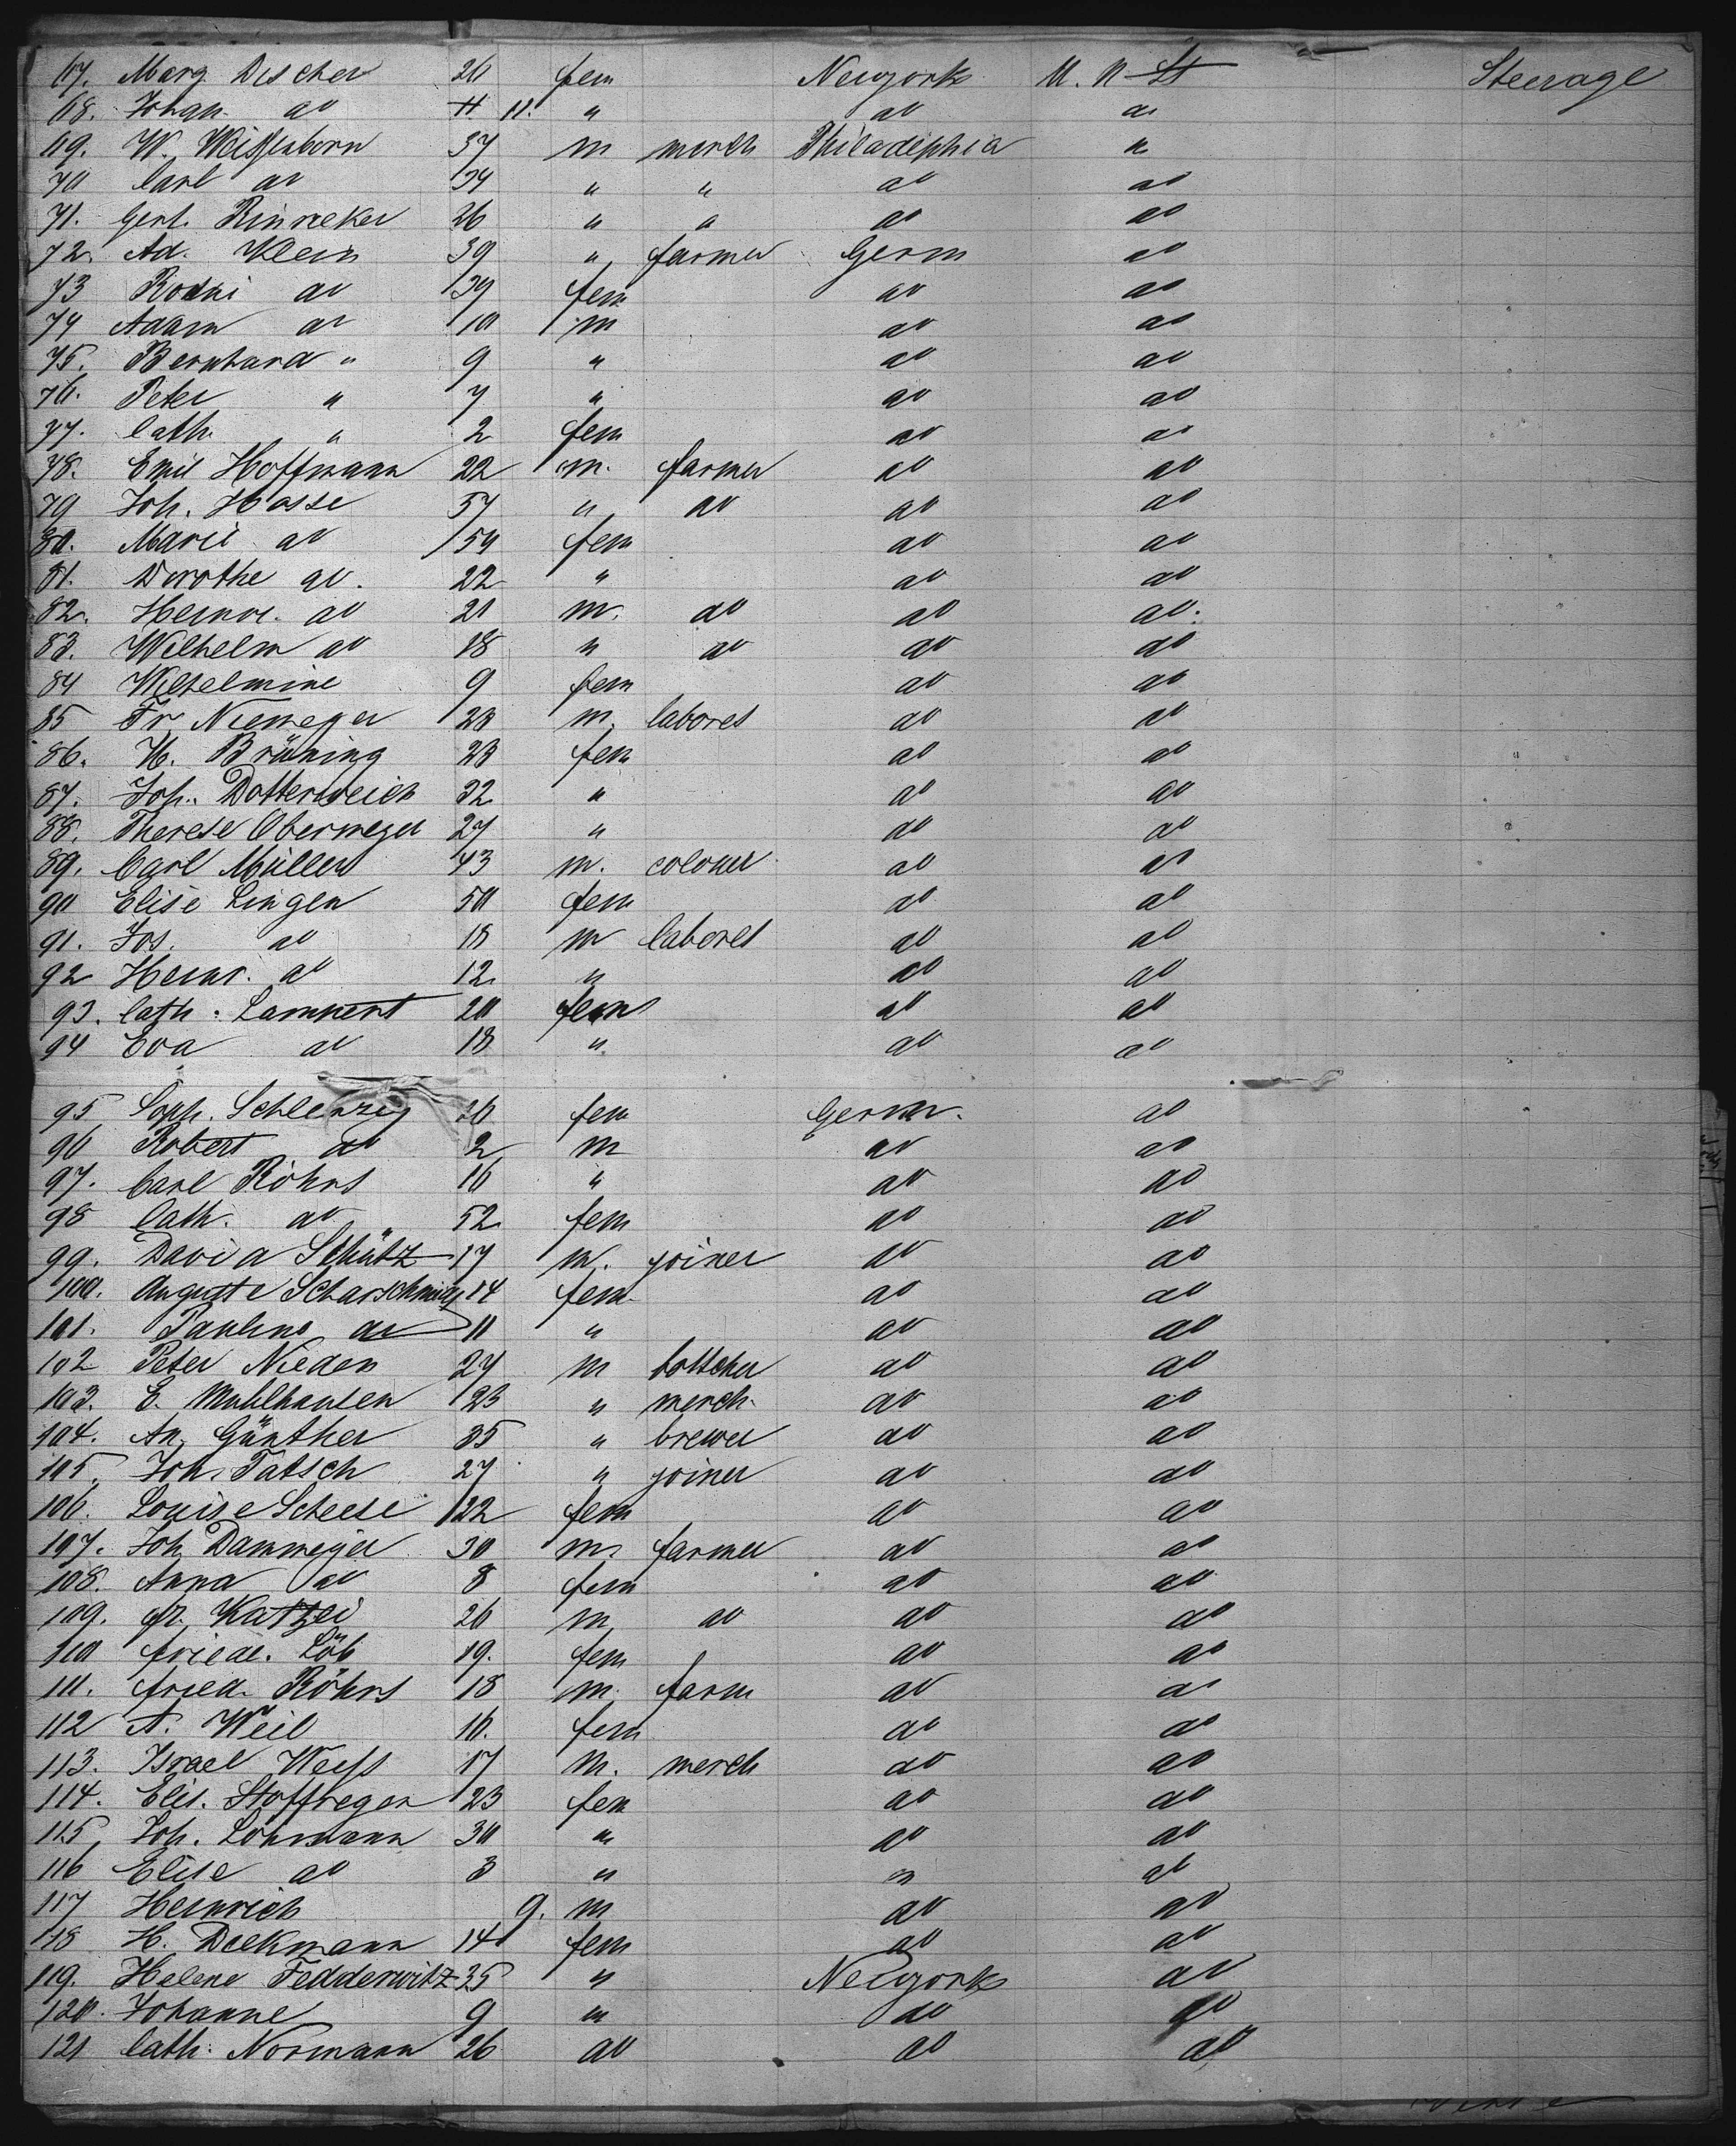 67. Marg. Discher 26 fem Newyork U. N St Steerage
68. Johan. do 11. " do do
69. W. Weissenborn 37 m merch Philadelphia "
70 Carl do 34 " " do do
71. Gert. Rinneker 26 " " do do
72. Ad. Klein 39 " farmer Germ do
73 do 39 fem do do
74 Adam do 10 m do do
75. Bernhard " 9 " do do
76. Peter " 7 " do do
77. Cath. " 2 fem do do
78. Emil Hoffmann 22 m. farmer do do
79 Joh. Hasse 57 " do do do
80. Marie do 54 fem do do
81. Dorothe do. 22 " do do
82. Heinr. do 21 m. do do do.
83. Wilhelm do 18 " do do do
84 Wilhelmine 9 fem do do
85 Fr Niemeyer 28 m. labores do do
86. H. Brüning 28 fem do do
87. Joh. Dotterweich 32 " do do
88. Therese Obermeyer 27 " do do
89. Carl Müller 43 m. colouer do do
90 Elise Lingen 50 fem do do
91. Jos. do 18 m labores do do
92 Heinr. do 12 " do do
93. Cath. Lampert 20 fem do do
94 Eva do 18 " do do
95 Soph. Schlenzig 26 fem Germ. do
96 Robert do 2 m do do
97. Carl Röhrs 16 " do do
98 Cath. do 52 fem do do
99. David Schütz 17 m. joiner do do
100. Auguste Scharschmidt 14 fem do do
101. Pauline do 11 " do do
102 Peter Nieden 27 m bottcher do do
103. E. Muhlhausen 23 " merch. do do
104. An. Günther 35 " brewer do do
105. Joh. Tatsch 27 " joiner do do
106. Louise Scheele 22 fem do do
107. Joh Dammeyer 30 m. farmer do do
108. Anna do 8 fem do do
109. Fr. Katzei 26 m do do do
110 Friede. Löb 19. fem do do
111. Fried. Röhrs 18 m. farm do do
112 A. Weil 16. fem do do
113. Israel Weiss 17 m. merch do do
114. Elis. Stoffregen 23 fem do do
115. Joh. Lohmann 30 " do do
116 Elise do 3 " " do
117 Heinrich 9. m do do
118 H. Deekmann 14 fem do do
119. Helene Fedderwitz 35 " Newyork do
120. Johanne 9 " do do
121 Cath. Normann 26 do do do